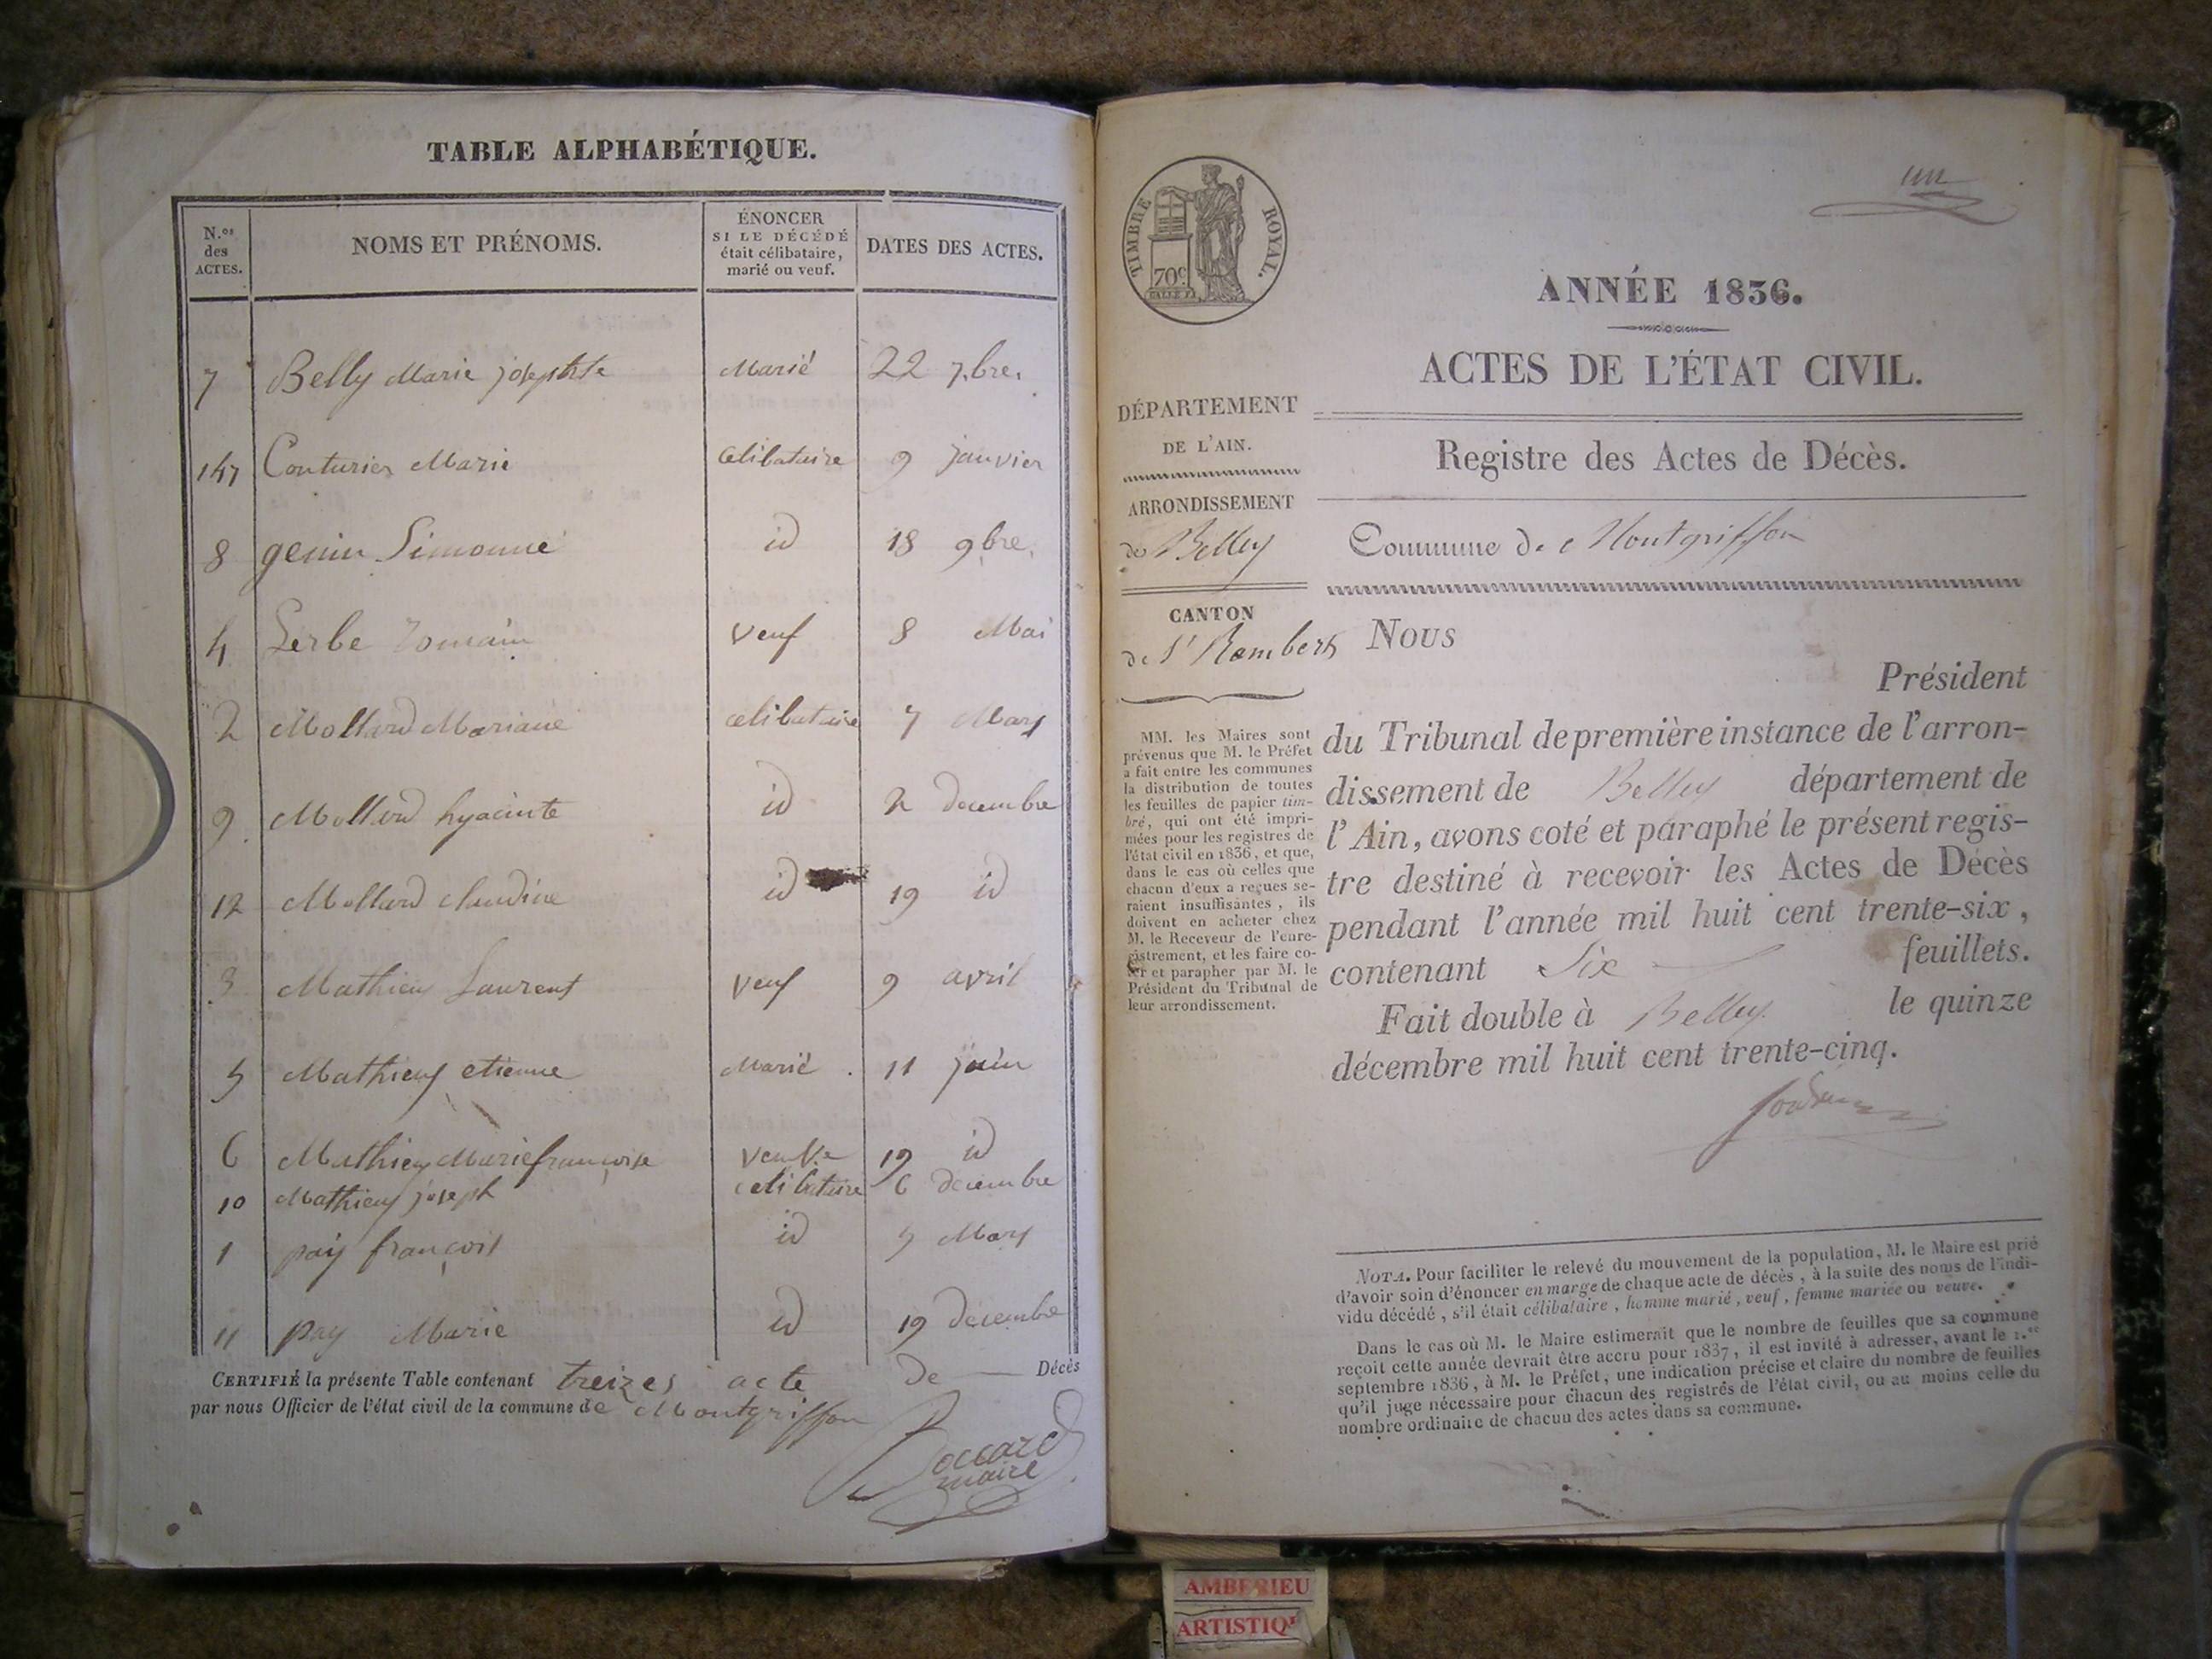 TABLE ALPHABÉTIQUE.
N.os des ACTES.
NOMS ET PRÉNOMS.
ÉNONCER SI LE DÉCÉDÉ était célibataire, marié ou veuf.
DATES DES ACTES.
7 Belly Marie josephte Marié 22 7.bre.
Couturier Marie celibataire 9 janvier
8 genin Simonne id 18 9bre.
4 Lerbe Romain Veuf 8 Mai
2 Mollard Mariane celibataire 7 Mars
9 Mollard hyacinte id 2 decembre
12 Mollard claudine id 19 id
3 Mathieu Laurent Veuf 9 avril
5 Mathieu etienne Marié 11 juin
6 Mathieu Marie françoise veuve 19 id
10 Mathieu joseph celibataire 6 decembre
1 pay françois id 5 Mars
11 pay Marie id 19 decembre
CERTIFIÉ la présente Table contenant treizes acte de Décès
par nous Officier de l'état civil de la commune de Montgriffon
Boccard
maire
un
TIMBRE ROYAL.
70c
ANNÉE 1836.
ACTES DE L'ÉTAT CIVIL.
DÉPARTEMENT
DE L'AIN.
Registre des Actes de Décès.
ARRONDISSEMENT
de Belley
Commune de Montgriffon
CANTON
de St Rambert
Nous
Président
du Tribunal de première instance de l'arron-
dissement de Belley département de
l'Ain, avons coté et paraphé le présent regis-
tre destiné à recevoir les Actes de Décès
pendant l'année mil huit cent trente-six,
contenant Six feuillets.
Fait double à Belley le quinze
décembre mil huit cent trente-cinq.
MM. les Maires sont
prévenus que M. le Préfet
a fait entre les communes
la distribution de toutes
les feuilles de papier tim-
bré, qui ont été impri-
mées pour les registres de
l'état civil en 1836, et que,
dans le cas où celles que
chacun d'eux a reçues se-
raient insuffisantes, ils
doivent en acheter chez
M. le Receveur de l'enre-
gistrement, et les faire co-
ter et parapher par M. le
Président du Tribunal de
leur arrondissement.
NOTA. Pour faciliter le relevé du mouvement de la population, M. le Maire est prié
d'avoir soin d'énoncer en marge de chaque acte de décès, à la suite des noms de l'indi-
vidu décédé, s'il était célibataire, homme marié, veuf, femme mariée ou veuve.
Dans le cas où M. le Maire estimerait que le nombre de feuilles que sa commune
reçoit cette année devrait être accru pour 1837, il est invité à adresser, avant le 1.er
septembre 1836, à M. le Préfet, une indication précise et claire du nombre de feuilles
qu'il juge nécessaire pour chacun des registres de l'état civil, ou au moins celle du
nombre ordinaire de chacun des actes dans sa commune.
AMBERIEU
ARTISTIQ